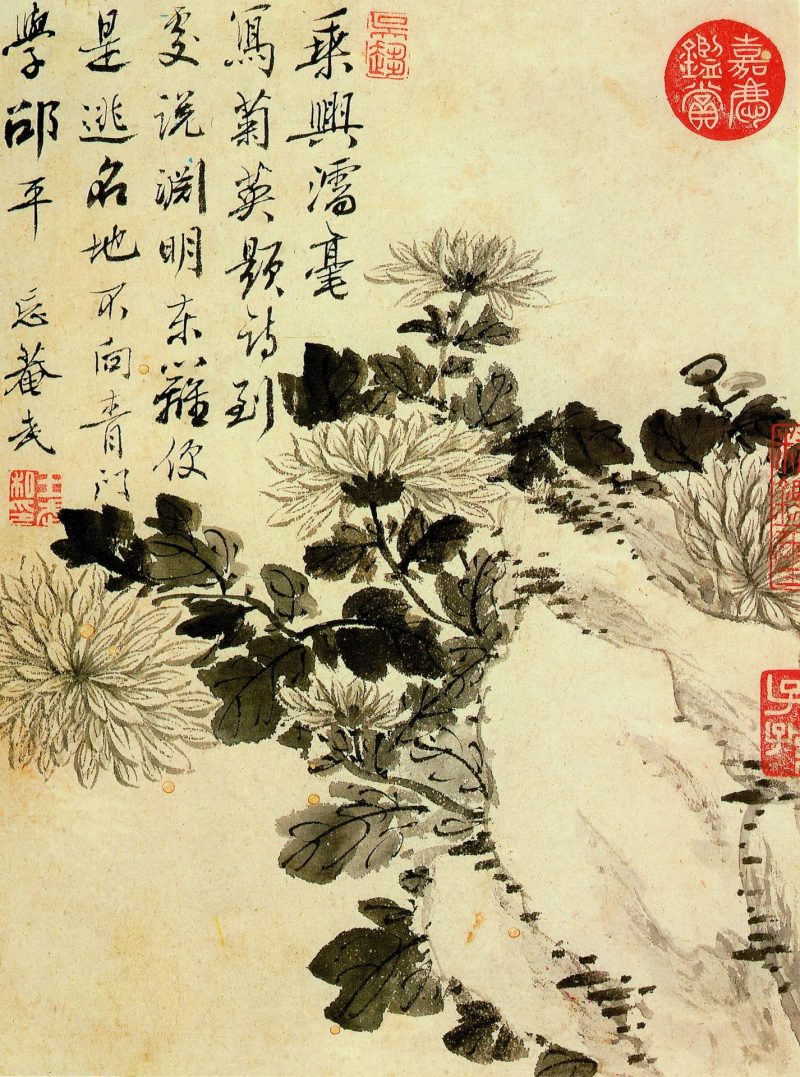 乘興濡毫
寫菊英題詩到
處說淵明東籬便
是逃名地不向青門
學邵平 忘菴武
嘉慶
鑑賞